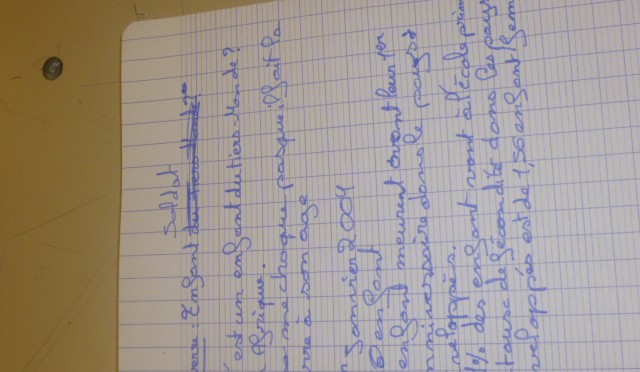 : Enfant du tiers Monde ?
Soldat
est un enfant du tiers-Monde ?
Afrique.
me choque pasqueil fait la
à son age
Janvier 2004
enfant
enfant meurent avant leur 1er
anniversaire dans le pays
veloppés.
% des enfant vont à l'école prim
taux de fécondité dans les pays
veloppés est de 1,56 enfant fem